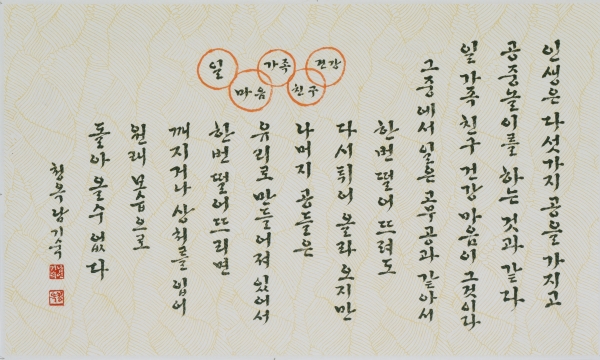 인생은 다섯가지 공을 가지고
공중놀이를 하는 것과 같다
일 가족 친구 건강 마음이 그것이다
그중에서 일은 고무공과 같아서
한번 떨어뜨려도
다시 튀어 올라 오지만
나머지 공들은
유리로 만들어져 있어서
한번 떨어뜨리면
깨지거나 상처를 입어
원래 모습으로
돌아 올수 없다
일 가족 건강
마음 친구
청옥 남기숙